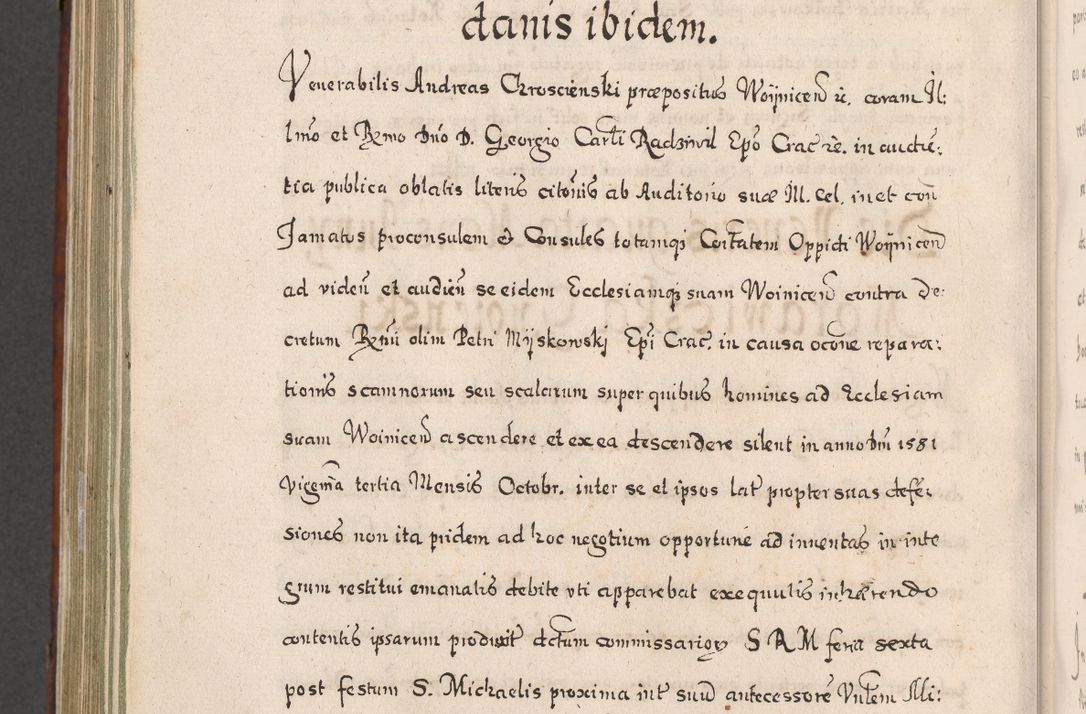 danis ibidem.
Venerabilis Andreas Chroscienski præpositus Woÿnicen̄ &c. coram Il:
lmo et Rmo Dno D. Georgio Carli Radziwil Epo Crac &c. in audie:
tia publica oblatis literis citonis ab Auditorio suæ Ill. Cel. in et con
Jamatos proconsulem & Consules totamq; Coitatem Oppidi Woÿnicen
ad viden et audien se eidem Ecclesiamq; suam Woinicen contra De:
cretum Rmi olim Petri Mÿskowskj Epi Crac. in causa occone repara:
tionis scamnorum seu scalarum super quibus homines ad Ecclesiam
suam Woinicen ascendere et ex ea descendere silent in anno Dni 1581
Vigesima tertia Mensis Octobr. inter se et ipsos lat propter suas defe:
siones non ita pridem ad hoc negotium opportune ad inuentas in inte
grum restitui emanatis debite vti apparebat exequutis inhærendo
contentis ipsarum produxit dictum commissarior S R M feria sexta
post festum S. Michaelis proxima int suu antecessore Vnlem Mi: